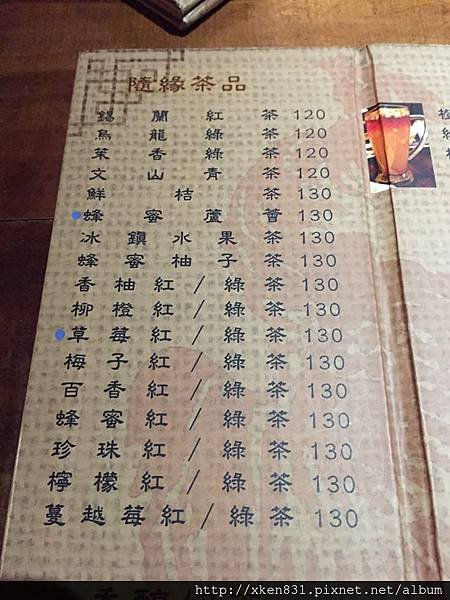 隨緣茶品
錫蘭紅茶 120
烏龍綠茶 120
茉香綠茶 120
文山青茶 120
鮮桔茶 130
蜂蜜蘆薈 130
冰鎮水果茶 130
蜂蜜柚子茶 130
香柚紅/綠茶 130
柳橙紅/綠茶 130
草莓紅/綠茶 130
梅子紅/綠茶 130
百香紅/綠茶 130
蜂蜜紅/綠茶 130
珍珠紅/綠茶 130
檸檬紅/綠茶 130
蔓越莓紅/綠茶 130
http://xken831.pixnet.net/album